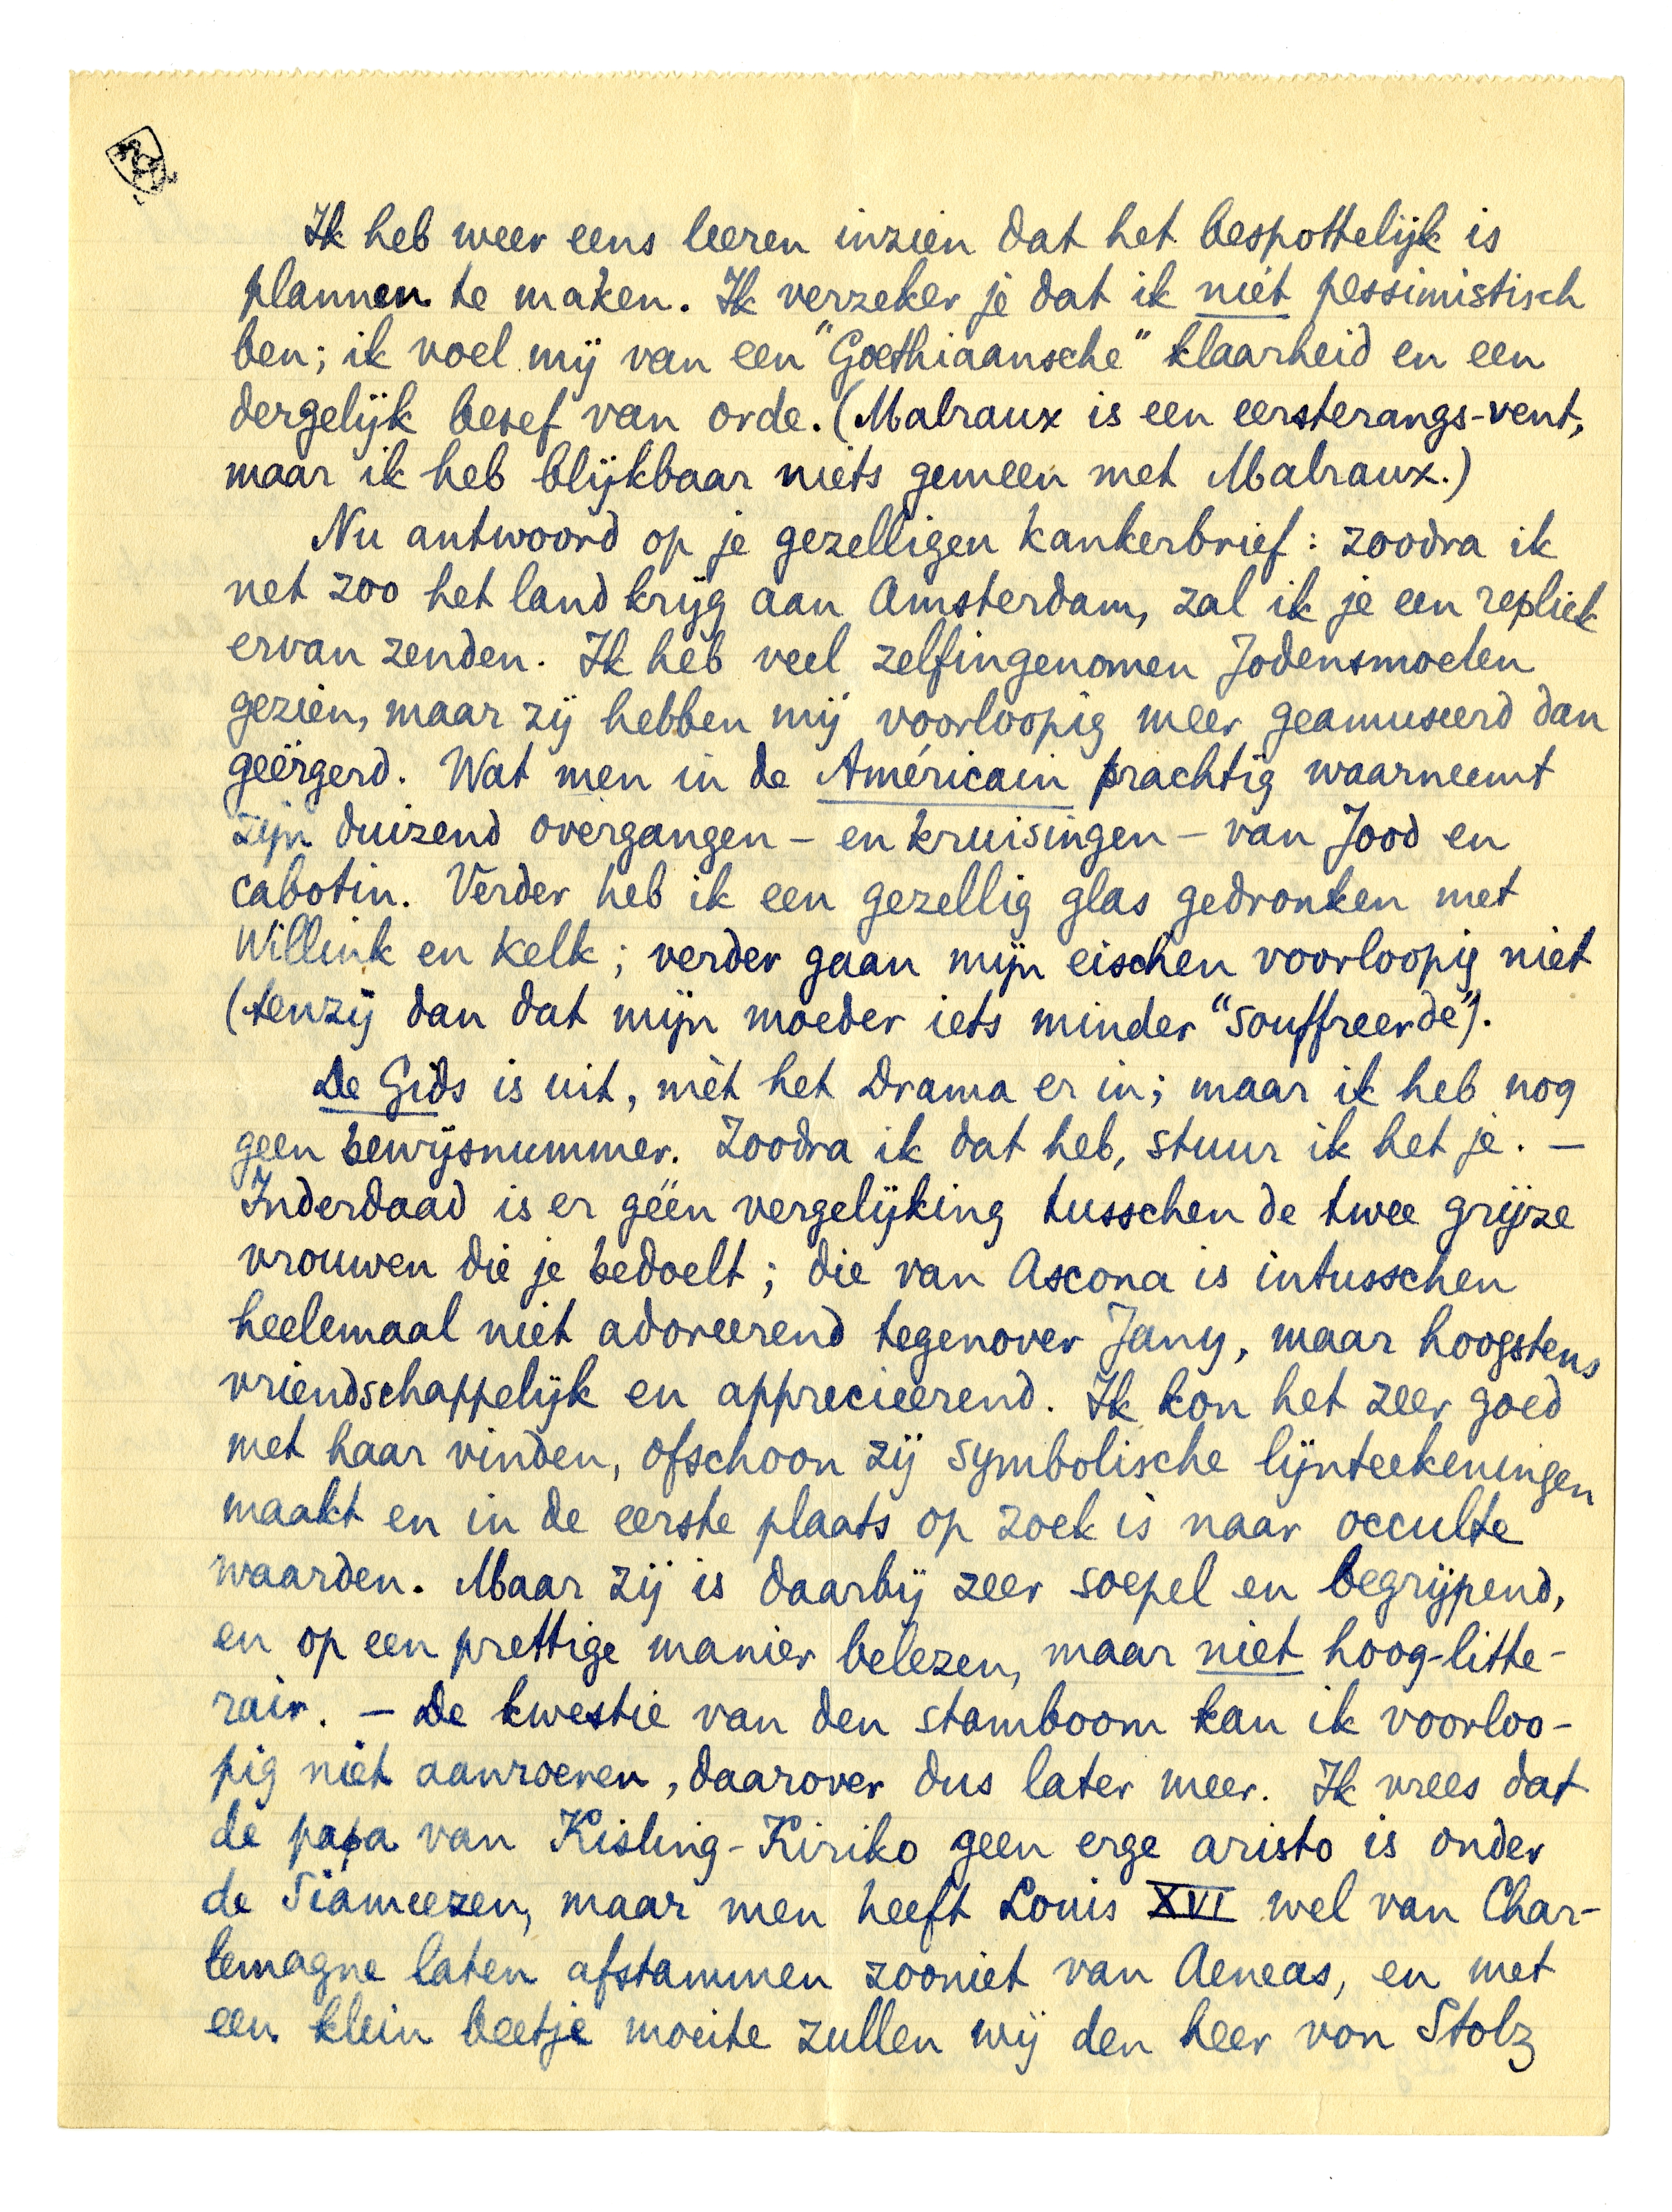 Ik heb weer eens leeren inzien dat het bespottelijk is
plannen te maken. Ik verzeker je dat ik niét pessimistisch
ben; ik voel mij van een "Goethiaansche" klaarheid en een
dergelijk besef van orde. (Malraux is een eersterangs-vent,
maar ik heb blijkbaar niets gemeen met Malraux.)
Nu antwoord op je gezelligen kankerbrief: zoodra ik
net zoo het land krijg aan Amsterdam, zal ik je een repliek
ervan zenden. Ik heb veel zelfingenomen Jodensmoelen
gezien, maar zij hebben mij voorloopig meer geamuseerd dan
geërgerd. Wat men in de Américain prachtig waarneemt
zijn duizend overgangen – en kruisingen – van Jood en
cabotin. Verder heb ik een gezellig glas gedronken met
Willink en Kelk; verder gaan mijn eischen voorloopig niet
(tenzij dan dat mijn moeder iets minder "souffreerde").
De Gids is uit, mèt het Drama er in; maar ik heb nog
geen bewijsnummer. Zoodra ik dat heb, stuur ik het je. –
Inderdaad is er géén vergelijking tusschen de twee grijze
vrouwen die je bedoelt; die van Ascona is intusschen
heelemaal niet adoreerend tegenover Jany, maar hoogstens
vriendschappelijk en apprecieerend. Ik kon het zeer goed
met haar vinden, ofschoon zij symbolische lijnteekeningen
maakt en in de eerste plaats op zoek is naar occulte
waarden. Maar zij is daarbij zeer soepel en begrijpend,
en op een prettige manier belezen, maar niet hoog-litte-
rair. – De kwestie van den stamboom kan ik voorloo-
pig niet aanroeren, daarover dus later meer. Ik vrees dat
de papa van Kisling-Kiriko geen erge aristo is onder
de Siameezen, maar men heeft Louis XVI wel van Char-
lemagne laten afstammen zooniet van Aeneas, en met
een klein beetje moeite zullen wij den heer von Stolz